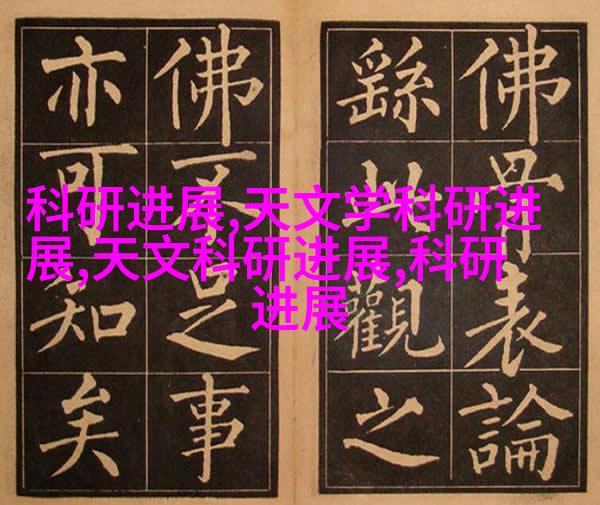 佛骨表論
繇此觀之
佛不足事
亦可知矣
科研进展,天文学科研进
展,天文科研进展,科研
进展